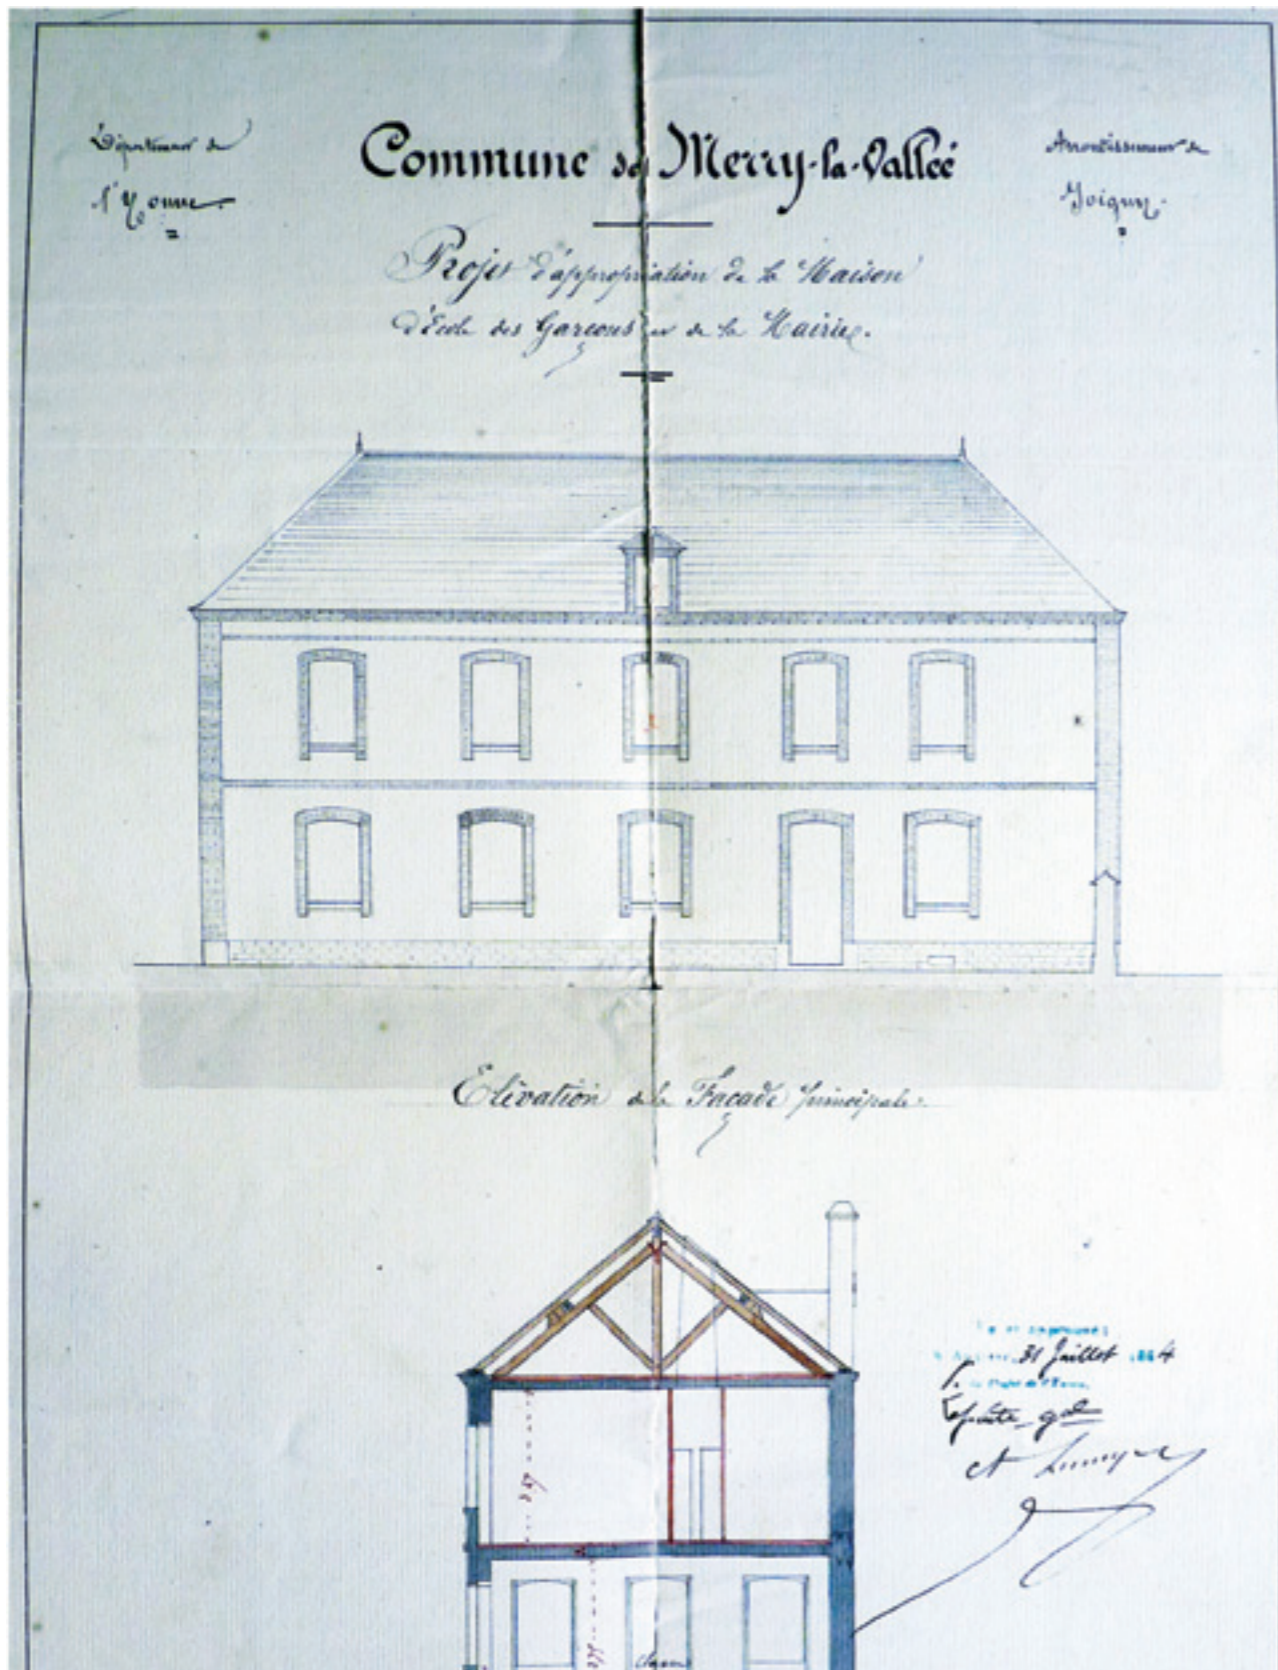 Département de
l'Yonne
Commune de Merry-la-Vallée
Arrondissement de
Joigny
Projet d'appropriation de la Maison
d'Ecole des Garçons et de la Mairie.
Elévation de la Façade principale.
Vu et approuvé
31 Juillet 1884
Préfet de l'Yonne
Classe